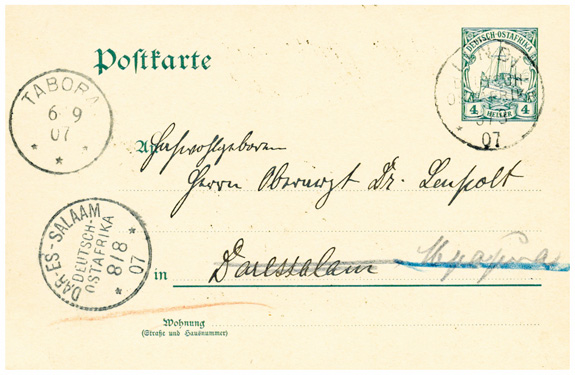 DEUTSCH-OSTAFRIKA
4 HELLER 4
Postkarte
07
TABORA
6 9
07
An
Hochwohlgeboren
Herrn Oberarzt Dr. Leupolt
DAR-ES-SALAAM
DEUTSCH-
OSTAFRIKA
8/8
07
in
Daressalam
Wohnung
(Straße und Hausnummer)